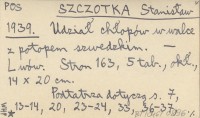 POS SZCZOTKA Stanisław
1939. Udział chłopów w walce
z potopem szwedzkim. —
Lwów. Stron 163, 5 tab., okł.,
14 x 20 cm.
Postatrza dotyczą s. 7,
13-14, 20, 23-24, 33, 36-37,